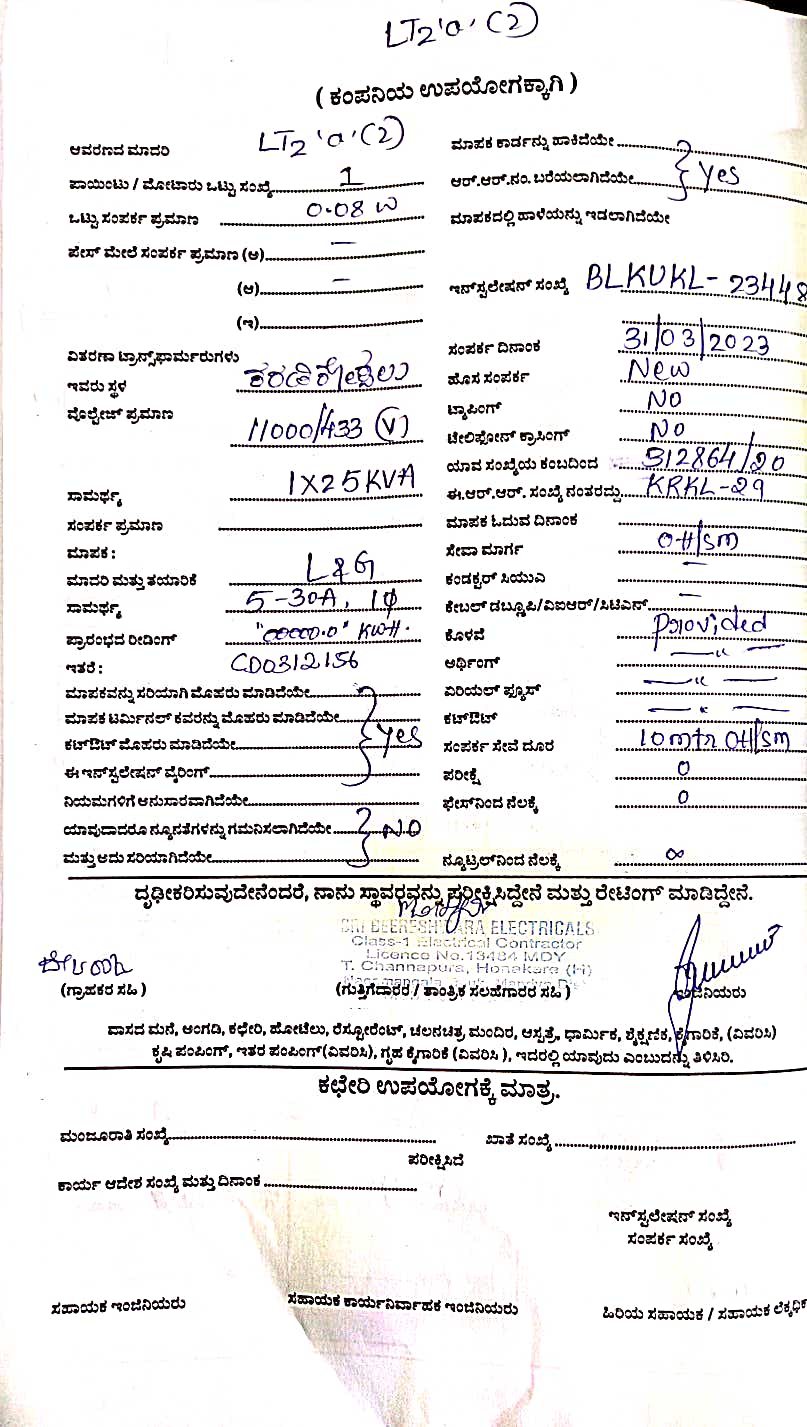 LT2 'a' (2)
( ಕಂಪನಿಯ ಉಪಯೋಗಕ್ಕಾಗಿ )
ಆವರಣದ ಮಾದರಿ LT2 'a' (2)
ಪಾಯಿಂಟು / ಮೋಟಾರು ಒಟ್ಟು ಸಂಖ್ಯೆ 1
ಒಟ್ಟು ಸಂಪರ್ಕ ಪ್ರಮಾಣ 0.08 W
ಪೇಸ್ ಮೇಲೆ ಸಂಪರ್ಕ ಪ್ರಮಾಣ (ಅ) —
(ಆ) —
(ಇ)
ವಿತರಣಾ ಟ್ರಾನ್ಸ್‌ಫಾರ್ಮರುಗಳು
ಇವರು ಸ್ಥಳ
ವೊಲ್ಟೇಜ್ ಪ್ರಮಾಣ 11000/433 (V)
ಸಾಮರ್ಥ್ಯ 1X25KVA
ಸಂಪರ್ಕ ಪ್ರಮಾಣ
ಮಾಪಕ :
ಮಾದರಿ ಮತ್ತು ತಯಾರಿಕೆ L&G
ಸಾಮರ್ಥ್ಯ 5-30A, 1φ
ಪ್ರಾರಂಭದ ರೀಡಿಂಗ್ "00000.0" KWH.
ಇತರೆ : CD0312156
ಮಾಪಕವನ್ನು ಸರಿಯಾಗಿ ಮೊಹರು ಮಾಡಿದೆಯೇ
ಮಾಪಕ ಟರ್ಮಿನಲ್ ಕವರನ್ನು ಮೊಹರು ಮಾಡಿದೆಯೇ
ಕಟ್‌ಔಟ್ ಮೊಹರು ಮಾಡಿದೆಯೇ yes
ಈ ಇನ್‌ಸ್ಟಲೇಷನ್ ವೈರಿಂಗ್
ನಿಯಮಗಳಿಗೆ ಅನುಸಾರವಾಗಿದೆಯೇ
ಯಾವುದಾದರೂ ನ್ಯೂನತೆಗಳನ್ನು ಗಮನಿಸಲಾಗಿದೆಯೇ NO
ಮತ್ತು ಅದು ಸರಿಯಾಗಿದೆಯೇ
ಮಾಪಕ ಕಾರ್ಡನ್ನು ಹಾಕಿದೆಯೇ
ಆರ್.ಆರ್.ನಂ. ಬರೆಯಲಾಗಿದೆಯೇ Yes
ಮಾಪಕದಲ್ಲಿ ಹಾಳೆಯನ್ನು ಇಡಲಾಗಿದೆಯೇ
ಇನ್‌ಸ್ಟಲೇಷನ್ ಸಂಖ್ಯೆ BLKUKL-23448
ಸಂಪರ್ಕ ದಿನಾಂಕ 31/03/2023
ಹೊಸ ಸಂಪರ್ಕ New
ಟ್ಯಾಪಿಂಗ್ NO
ಟೇಲಿಫೋನ್ ಕ್ರಾಸಿಂಗ್ NO
ಯಾವ ಸಂಖ್ಯೆಯ ಕಂಬದಿಂದ 312864/20
ಈ.ಆರ್.ಆರ್. ಸಂಖ್ಯೆ ನಂತರದ್ದು KRKL-29
ಮಾಪಕ ಓದುವ ದಿನಾಂಕ
ಸೇವಾ ಮಾರ್ಗ OH/SM
ಕಂಡಕ್ಟರ್ ಸಿಯುವಿ —
ಕೇಬಲ್ ಡಬ್ಲೂಪಿ/ವಿಐಆರ್/ಸಿಟಿಎನ್ —
ಕೊಳವೆ Provided
ಅರ್ಥಿಂಗ್ —"—
ಎರಿಯಲ್ ಫ್ಯೂಸ್ —"—
ಕಟ್‌ಔಟ್ —"—
ಸಂಪರ್ಕ ಸೇವೆ ದೂರ 10mtr OH/SM
ಪರೀಕ್ಷೆ 0
ಫೇಸ್‌ನಿಂದ ನೆಲಕ್ಕೆ 0
ನ್ಯೂಟ್ರಲ್‌ನಿಂದ ನೆಲಕ್ಕೆ ∞
ದೃಢೀಕರಿಸುವುದೇನೆಂದರೆ, ನಾನು ಸ್ಥಾವರವನ್ನು ಪರೀಕ್ಷಿಸಿದ್ದೇನೆ ಮತ್ತು ರೇಟಿಂಗ್ ಮಾಡಿದ್ದೇನೆ.
SRI BEERESHWARA ELECTRICALS
Class-1 Electrical Contractor
Licence No.13484 MDY
T. Channapura, Honakere (H)
(ಗ್ರಾಹಕರ ಸಹಿ ) (ಗುತ್ತಿಗೆದಾರರ / ತಾಂತ್ರಿಕ ಸಲಹೆಗಾರರ ಸಹಿ ) ಇಂಜಿನಿಯರು
ವಾಸದ ಮನೆ, ಅಂಗಡಿ, ಕಛೇರಿ, ಹೋಟೆಲು, ರೆಸ್ಟೋರೆಂಟ್, ಚಲನಚಿತ್ರ ಮಂದಿರ, ಆಸ್ಪತ್ರೆ, ಧಾರ್ಮಿಕ, ಶೈಕ್ಷಣಿಕ, ಕೈಗಾರಿಕೆ, (ವಿವರಿಸಿ)
ಕೃಷಿ ಪಂಪಿಂಗ್, ಇತರ ಪಂಪಿಂಗ್(ವಿವರಿಸಿ), ಗೃಹ ಕೈಗಾರಿಕೆ (ವಿವರಿಸಿ ), ಇದರಲ್ಲಿ ಯಾವುದು ಎಂಬುದನ್ನು ತಿಳಿಸಿರಿ.
ಕಛೇರಿ ಉಪಯೋಗಕ್ಕೆ ಮಾತ್ರ.
ಮಂಜೂರಾತಿ ಸಂಖ್ಯೆ ಖಾತೆ ಸಂಖ್ಯೆ
ಪರೀಕ್ಷಿಸಿದೆ
ಕಾರ್ಯ ಆದೇಶ ಸಂಖ್ಯೆ ಮತ್ತು ದಿನಾಂಕ
ಇನ್‌ಸ್ಟಲೇಷನ್ ಸಂಖ್ಯೆ
ಸಂಪರ್ಕ ಸಂಖ್ಯೆ
ಸಹಾಯಕ ಇಂಜಿನಿಯರು ಸಹಾಯಕ ಕಾರ್ಯನಿರ್ವಾಹಕ ಇಂಜಿನಿಯರು ಹಿರಿಯ ಸಹಾಯಕ / ಸಹಾಯಕ ಲೆಕ್ಕಧಿಕ